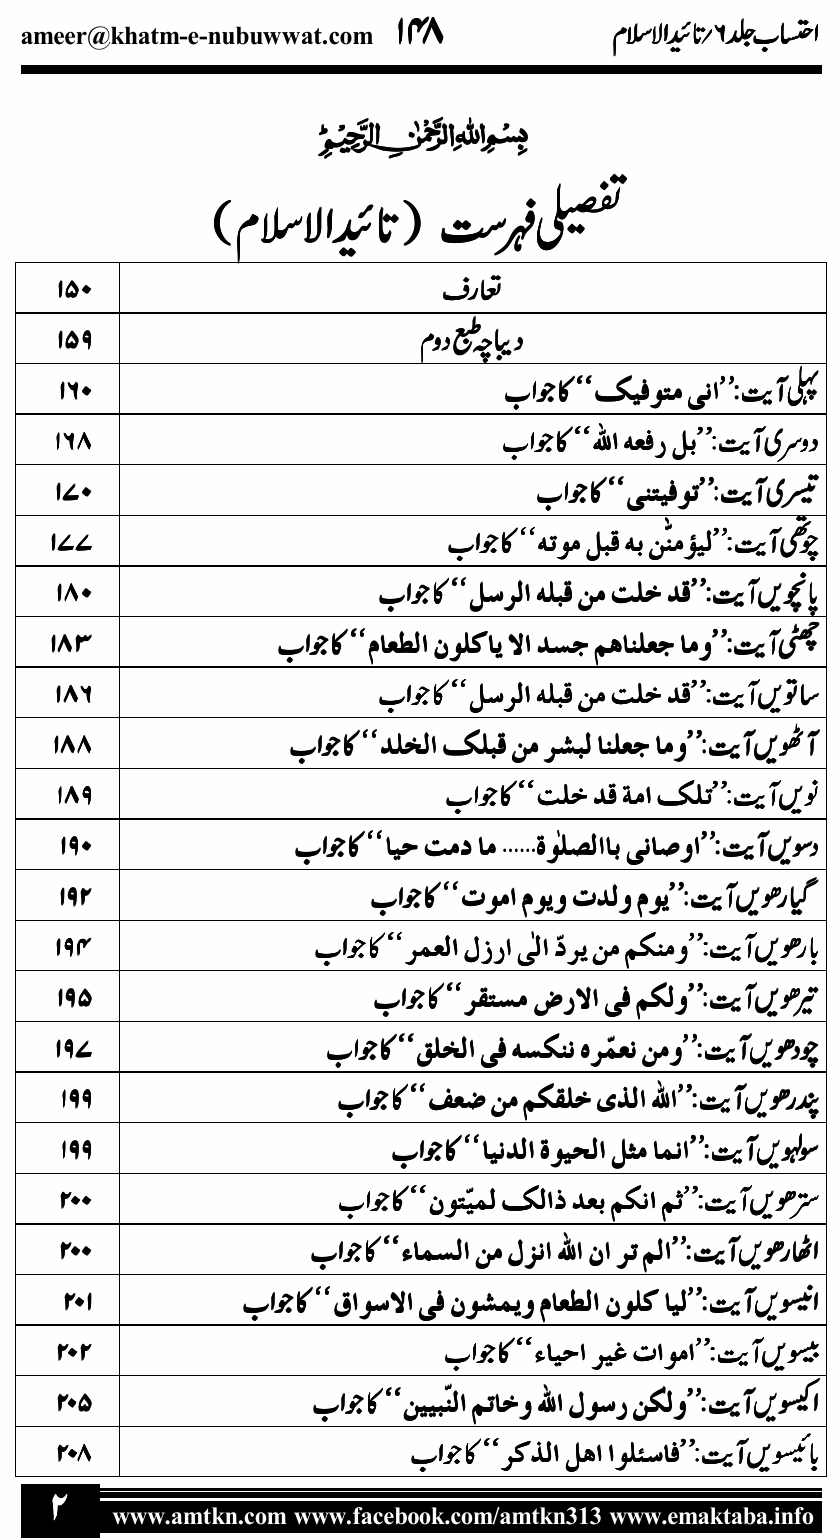 احتساب جلد ۶؍ تائید الاسلام ۱۴۸ ameer@khatm-e-nubuwwat.com
بسم اللہ الرحمٰن الرحیم
تفصیلی فہرست (تائید الاسلام)
تعارف ۱۵۰
دیباچہ طبع دوم ۱۵۹
پہلی آیت:’’انی متوفیک‘‘ کا جواب ۱۶۰
دوسری آیت:’’بل رفعه الله‘‘ کا جواب ۱۶۸
تیسری آیت:’’توفیتنی‘‘ کا جواب ۱۷۰
چوتھی آیت:’’لیؤمنن به قبل موته‘‘ کا جواب ۱۷۷
پانچویں آیت:’’قد خلت من قبله الرسل‘‘ کا جواب ۱۸۰
چھٹی آیت:’’وما جعلناهم جسد الا یاکلون الطعام‘‘ کا جواب ۱۸۳
ساتویں آیت:’’قد خلت من قبله الرسل‘‘ کا جواب ۱۸۶
آٹھویں آیت:’’وما جعلنا لبشر من قبلک الخلد‘‘ کا جواب ۱۸۸
نویں آیت:’’تلک امة قد خلت‘‘ کا جواب ۱۸۹
دسویں آیت:’’اوصانی باالصلٰوة...... ما دمت حیا‘‘ کا جواب ۱۹۰
گیارھویں آیت:’’یوم ولدت ویوم اموت‘‘ کا جواب ۱۹۲
بارھویں آیت:’’ومنکم من یردّ الٰی ارزل العمر‘‘ کا جواب ۱۹۴
تیرھویں آیت:’’ولکم فی الارض مستقر‘‘ کا جواب ۱۹۵
چودھویں آیت:’’ومن نعمّره ننکسه فی الخلق‘‘ کا جواب ۱۹۷
پندرھویں آیت:’’الله الذی خلقکم من ضعف‘‘ کا جواب ۱۹۹
سولہویں آیت:’’انما مثل الحیوة الدنیا‘‘ کا جواب ۱۹۹
سترھویں آیت:’’ثم انکم بعد ذالک لمیّتون‘‘ کا جواب ۲۰۰
اٹھارھویں آیت:’’الم تر ان الله انزل من السماء‘‘ کا جواب ۲۰۰
انیسویں آیت:’’لیا کلون الطعام ویمشون فی الاسواق‘‘ کا جواب ۲۰۱
بیسویں آیت:’’اموات غیر احیاء‘‘ کا جواب ۲۰۲
اکیسویں آیت:’’ولکن رسول الله وخاتم النّبیین‘‘ کا جواب ۲۰۵
بائیسویں آیت:’’فاسئلوا اهل الذکر‘‘ کا جواب ۲۰۸
۲ www.amtkn.com www.facebook.com/amtkn313 www.emaktaba.info